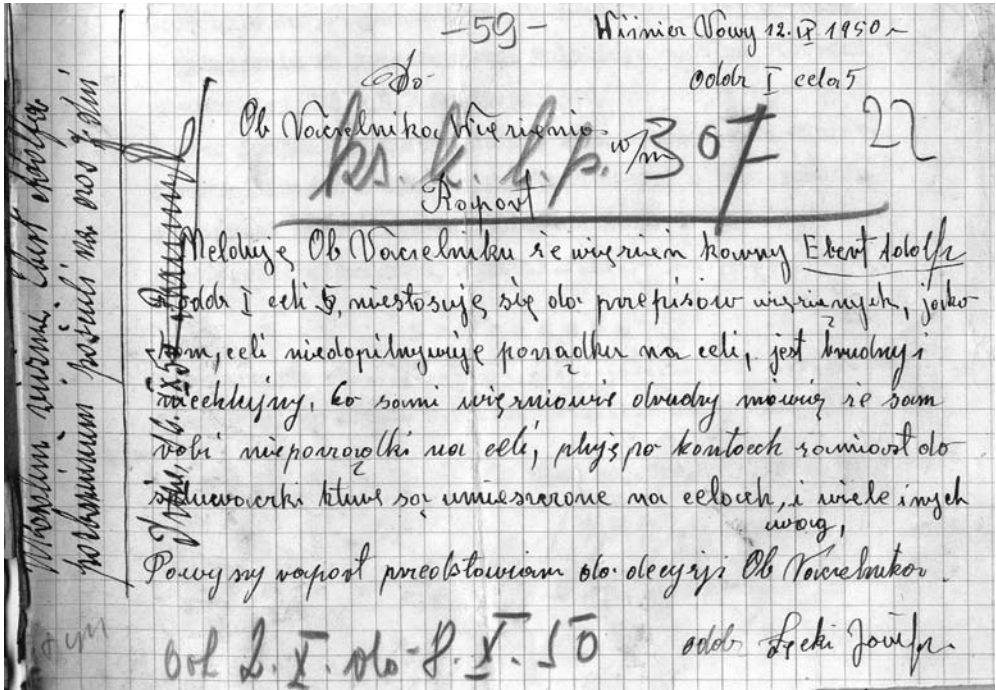 -59-
Wiśnicz Nowy 12.IX 1950
Do
oddz I cela 5
Ob Naczelnika Więzienia w/m
ks. k. b. p. 307
22
Raport
Melduję Ob Naczelniku że więzień karny Ebert Adolf
oddz I celi 5, niestosuję się do przepisów więziennych, jako
sam, celi niedopilnywuję porządku na celi, jest brudny i
niechlujny, to sami więzniowie mówią że sam
robi nieporządki na celi, pluję po kontach zamiast do
spluwaczki kture są umieszczone na celach, i wiele inych
uwag,
Powyszy raport przedstawiam do decyzji Ob Naczelnikov.
od 2.X. do 8.X.50
oddz Łęcki Józef
Ebert Adolfa
na 7 dni